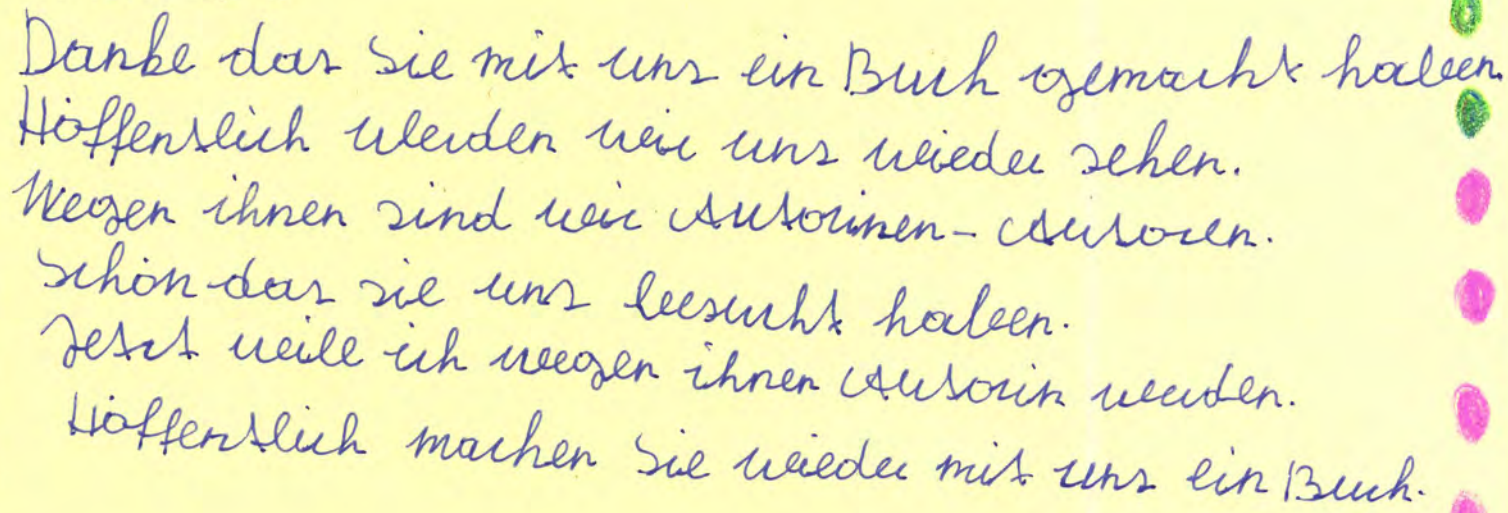 Danke das Sie mit uns ein Buch gemacht haben.
Hoffentlich werden wir uns wieder sehen.
Wegen ihnen sind wir Autorinen-Autoren.
Schön das sie uns besucht haben.
Jetzt will ich wegen ihnen Autorin werden.
Hoffentlich machen Sie wieder mit uns ein Buch.